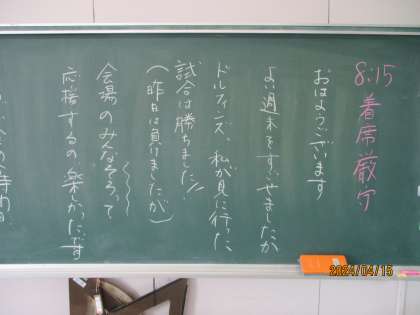 8:15 着席厳守
おはようございます
よい週末をすごせましたか
ドルフィンズ、私が見に行った
試合は勝ちました!!
(昨年は負けましたが)
会場のみんなそろって
応援するの、楽しかったです
2024/04/15